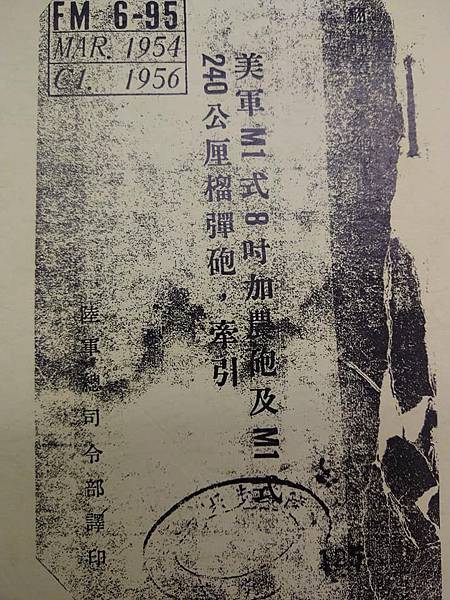 FM 6-95
MAR. 1954
C1. 1956
美軍M1式8吋加農砲及M1式
240公厘榴彈砲，牽引
陸軍總司令部譯印